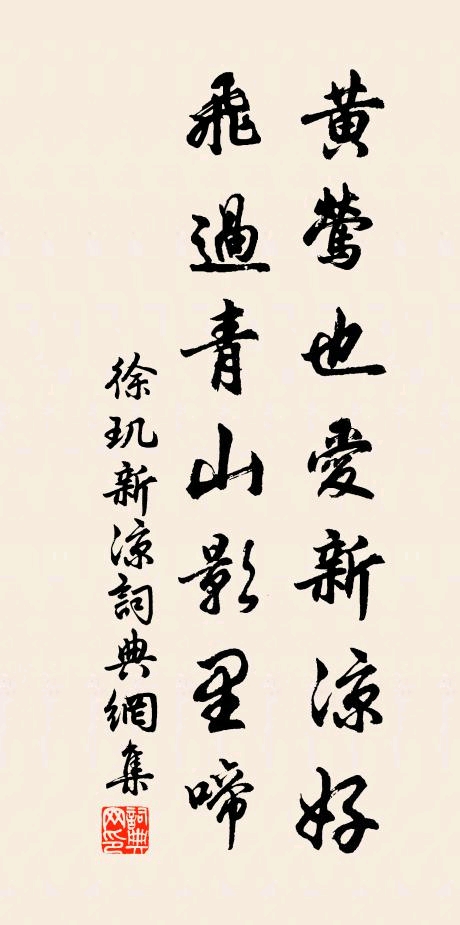 黄鶯也愛新涼好
飛過青山影里啼
徐玑新涼詞典網集
詞典網印